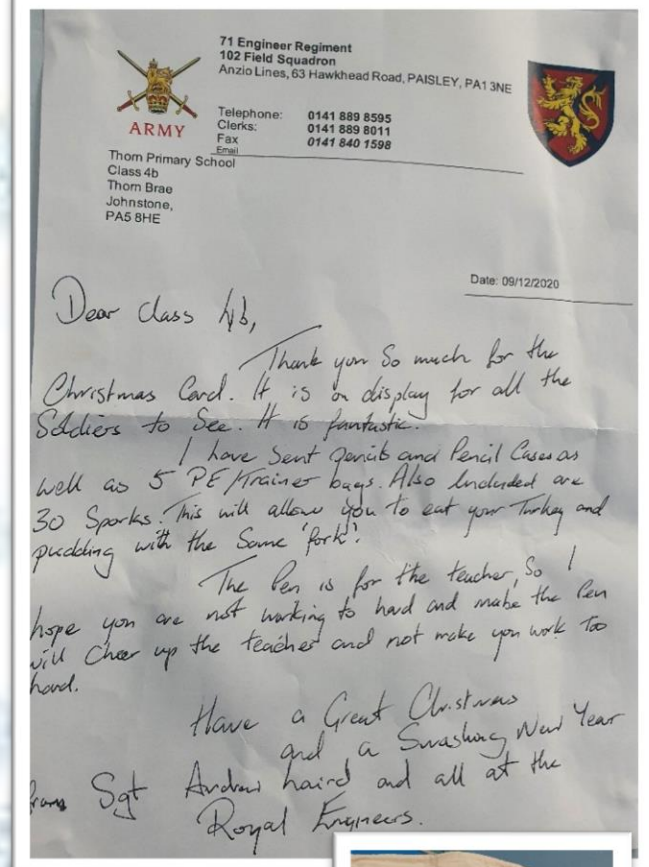 71 Engineer Regiment
102 Field Squadron
Anzio Lines, 63 Hawkhead Road, PAISLEY, PA1 3NE
ARMY
Telephone: 0141 889 8595
Clerks: 0141 889 8011
Fax 0141 840 1598
Email
Thorn Primary School
Class 4b
Thorn Brae
Johnstone,
PA5 8HE
Date: 09/12/2020
Dear Class 4b,
Thank you So much for the
Christmas Card. It is on display for all the
Soldiers to See. It is fantastic.
I have Sent pencils and Pencil Cases as
well as 5 PE/Trainer bags. Also Included are
30 Sporks. This will allow you to eat your Turkey and
pudding with the Same 'fork'.
The Pen is for the teacher, So I
hope you are not working to hard and maybe the Pen
will Cheer up the teacher and not make you work Too
hard.
Have a Great Christmas
and a Smashing New Year
from Sgt Andrew Laird and all at the
Royal Engineers.